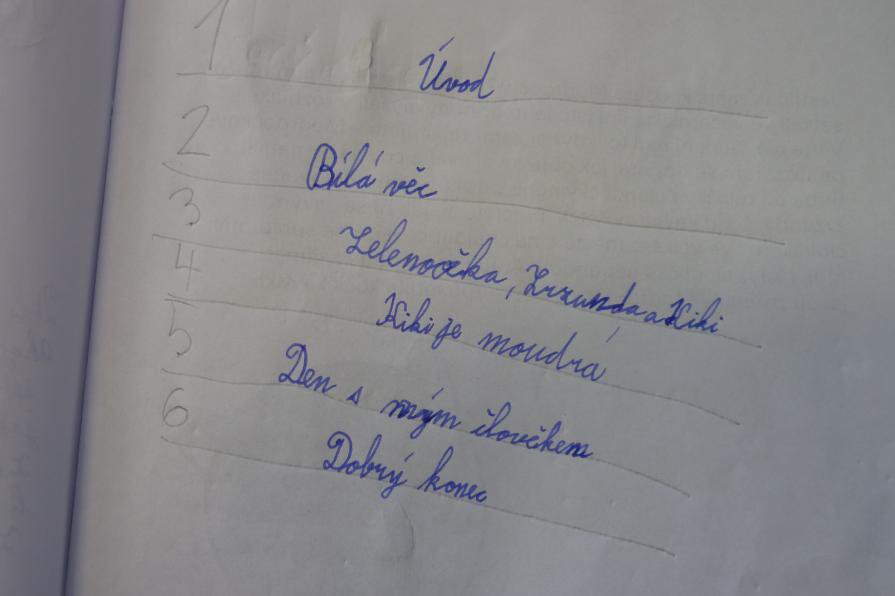 1 Úvod
2 Bílá věc
3 Zelenoočka, Zrzunda a Kiki
4 Kiki je moudrá
5 Den s mým člověkem
6 Dobrý konec